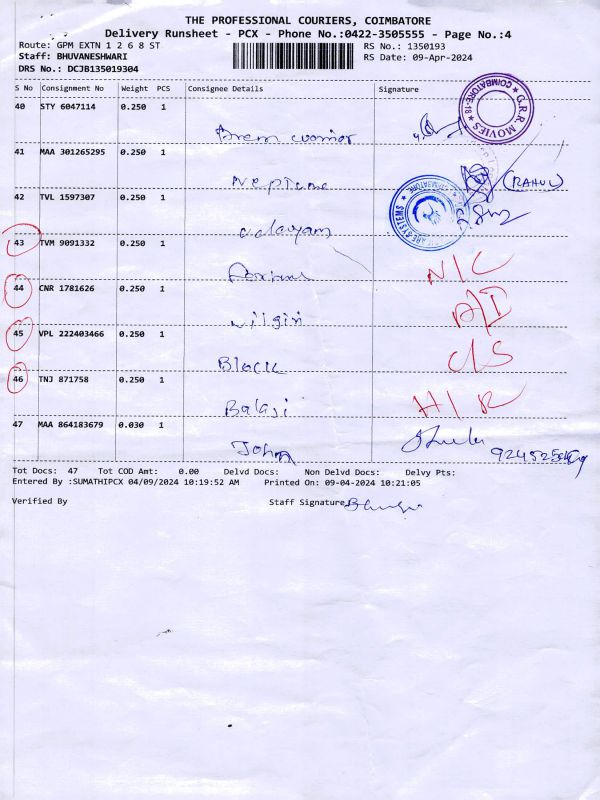 THE PROFESSIONAL COURIERS, COIMBATORE
Delivery Runsheet - PCX - Phone No.:0422-3505555 - Page No.:4
Route: GPM EXTN 1 2 6 8 ST
RS No.: 1350193
Staff: BHUVANESHWARI
RS Date: 09-Apr-2024
DRS No.: DCJB135019304
S No Consignment No Weight PCS Consignee Details Signature
40 STY 6047114 0.250 1
G.R.R MOVIES * COIMBATORE-18 *
41 MAA 301265295 0.250 1
Neptune
(RAHUL)
42 TVL 1597307 0.250 1
43 TVM 9091332 0.250 1
N/C
44 CNR 1781626 0.250 1
Nilgiri
A/I
45 VPL 222403466 0.250 1
Block
C/S
46 TNJ 871758 0.250 1
Balaji
H/R
47 MAA 864183679 0.030 1
John
Tot Docs: 47 Tot COD Amt: 0.00 Delvd Docs: Non Delvd Docs: Delvy Pts:
Entered By :SUMATHIPCX 04/09/2024 10:19:52 AM Printed On: 09-04-2024 10:21:05
Verified By Staff Signature